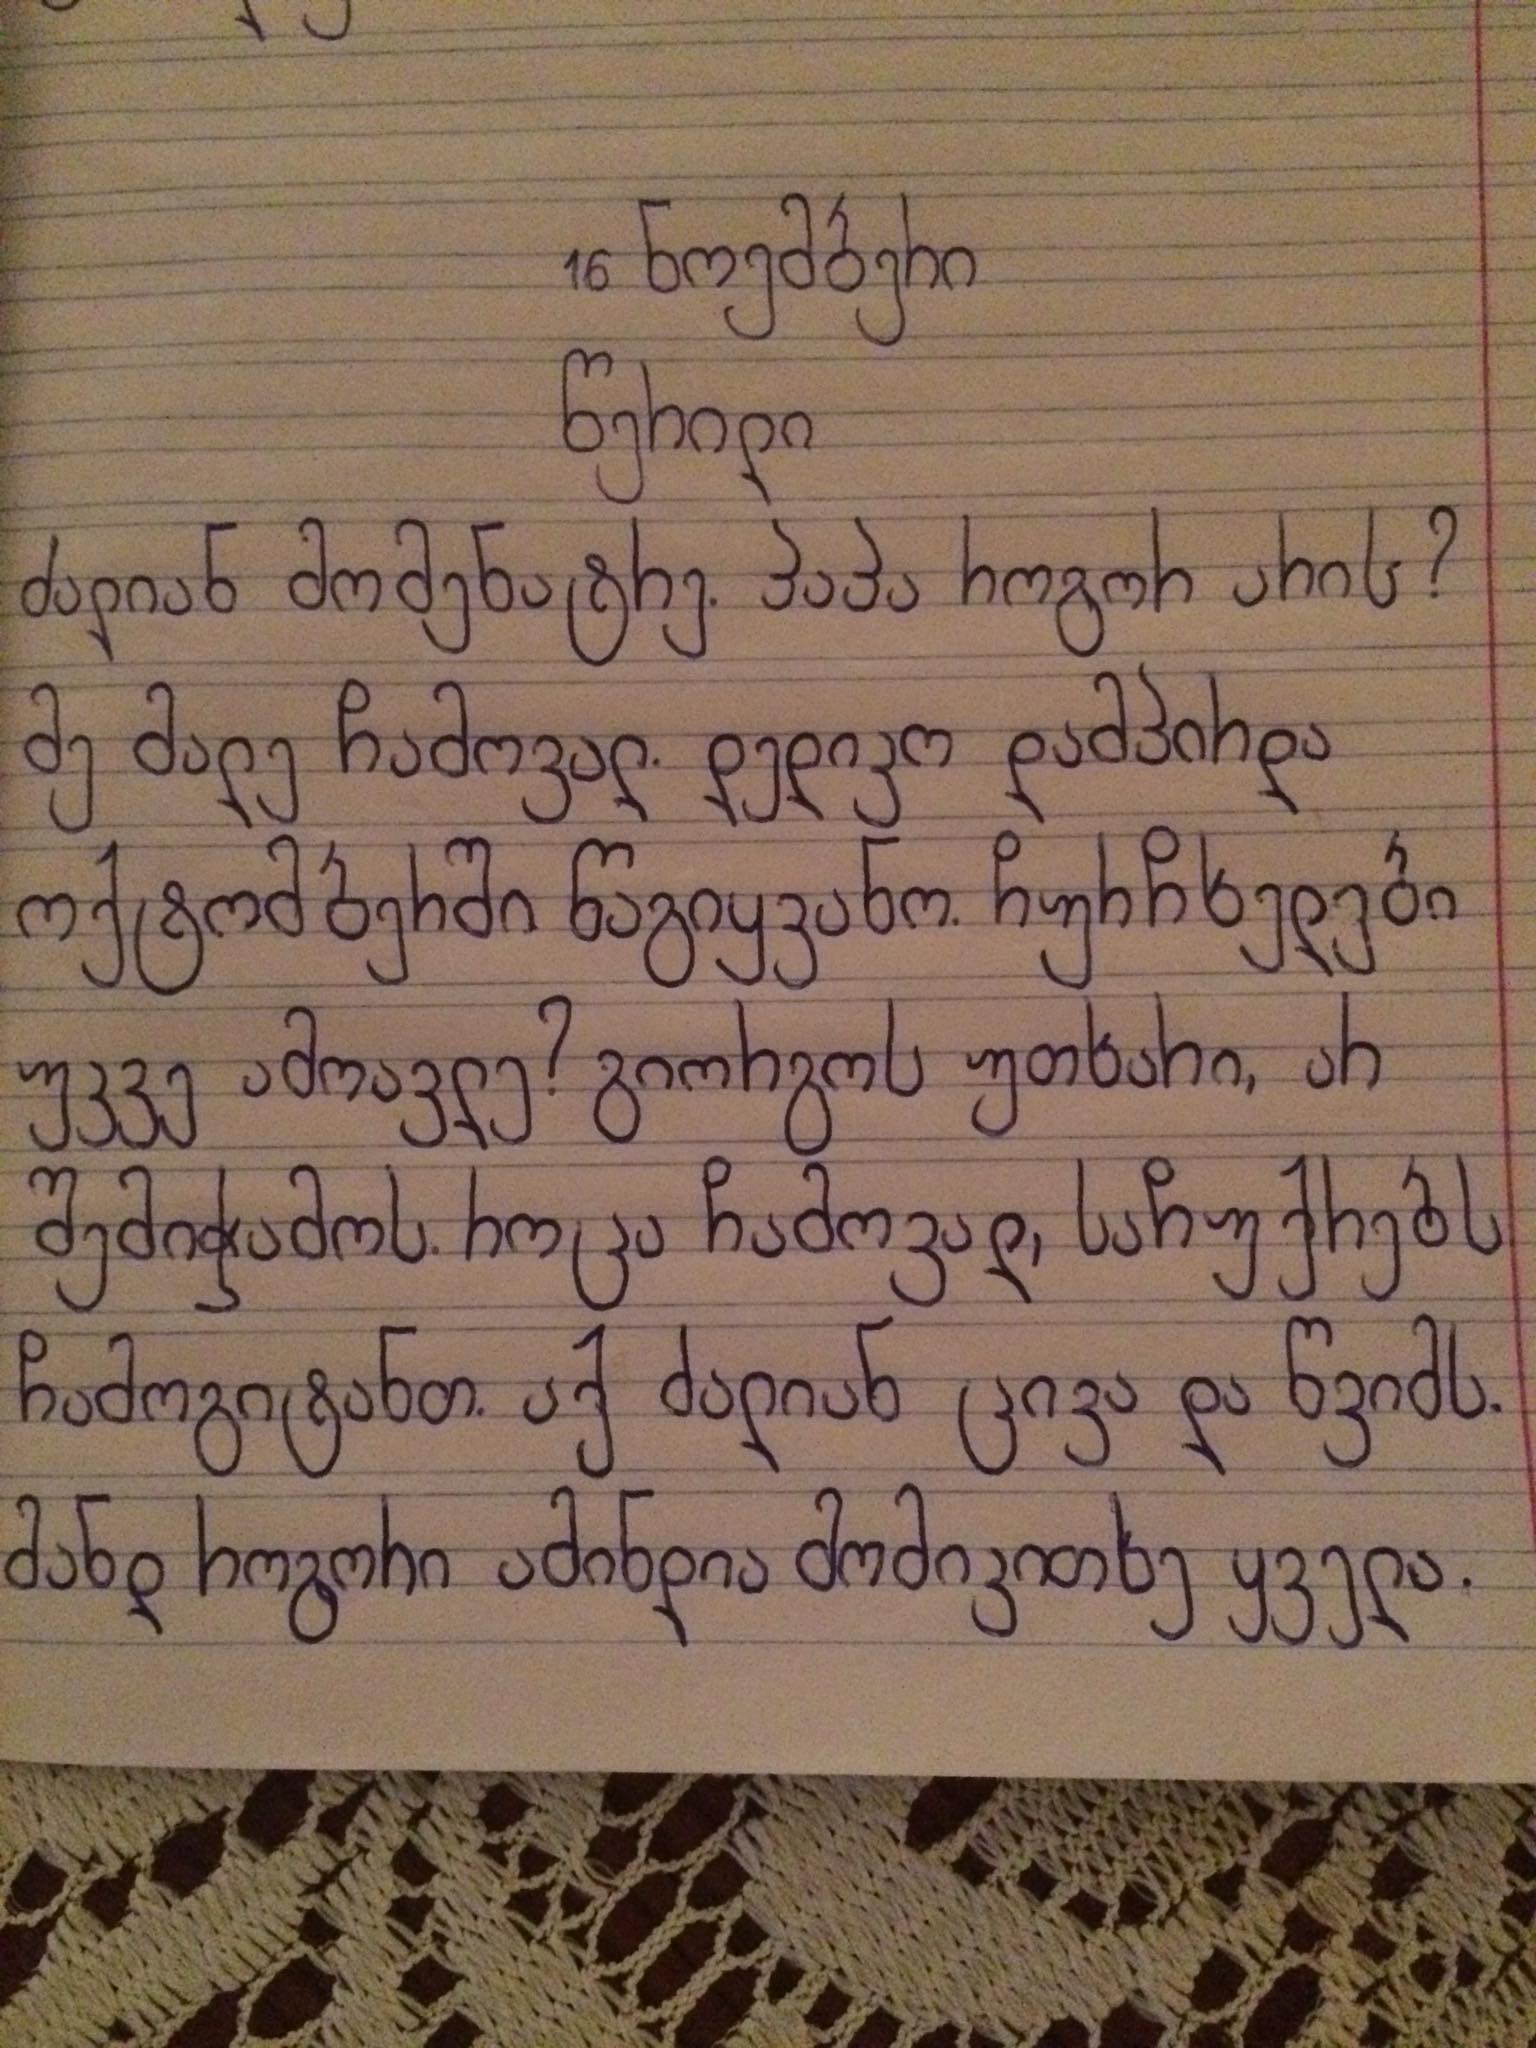 16 ნოემბერი
წერილი
ძალიან მომენატრე. პაპა როგორ არის?
მე მალე ჩამოვალ. დედიკო დამპირდა
ოქტომბერში წაგიყვანო. ჩურჩხელები
უკვე ამოავლე? გიორგოს უთხარი, არ
შემიჭამოს. როცა ჩამოვალ, საჩუქრებს
ჩამოგიტანთ. აქ ძალიან ცივა და წვიმს.
მანდ როგორი ამინდია მომიკითხე ყველა.